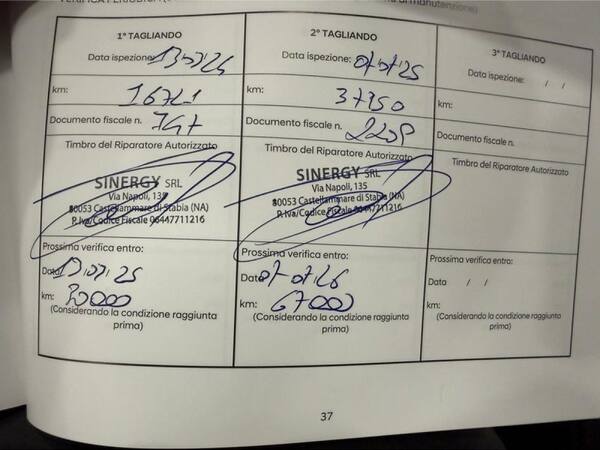 1° TAGLIANDO
Data ispezione:
km: 16721
Documento fiscale n. 747
Timbro del Riparatore Autorizzato
SINERGY SRL
Via Napoli, 135
80053 Castellammare di Stabia (NA)
P. Iva/Codice Fiscale 06447711216
Prossima verifica entro:
Data
km: 30000
(Considerando la condizione raggiunta
prima)
2° TAGLIANDO
Data ispezione: 07/07/25
km: 37350
Documento fiscale n.
Timbro del Riparatore Autorizzato
SINERGY SRL
Via Napoli, 135
80053 Castellammare di Stabia (NA)
P. Iva/Codice Fiscale 06447711216
Prossima verifica entro:
Data 07-07-26
km: 67000
(Considerando la condizione raggiunta
prima)
3° TAGLIANDO
Data ispezione: / /
km:
Documento fiscale n.
Timbro del Riparatore Autorizzato
Prossima verifica entro:
Data / /
km:
(Considerando la condizione raggiunta
prima)
37